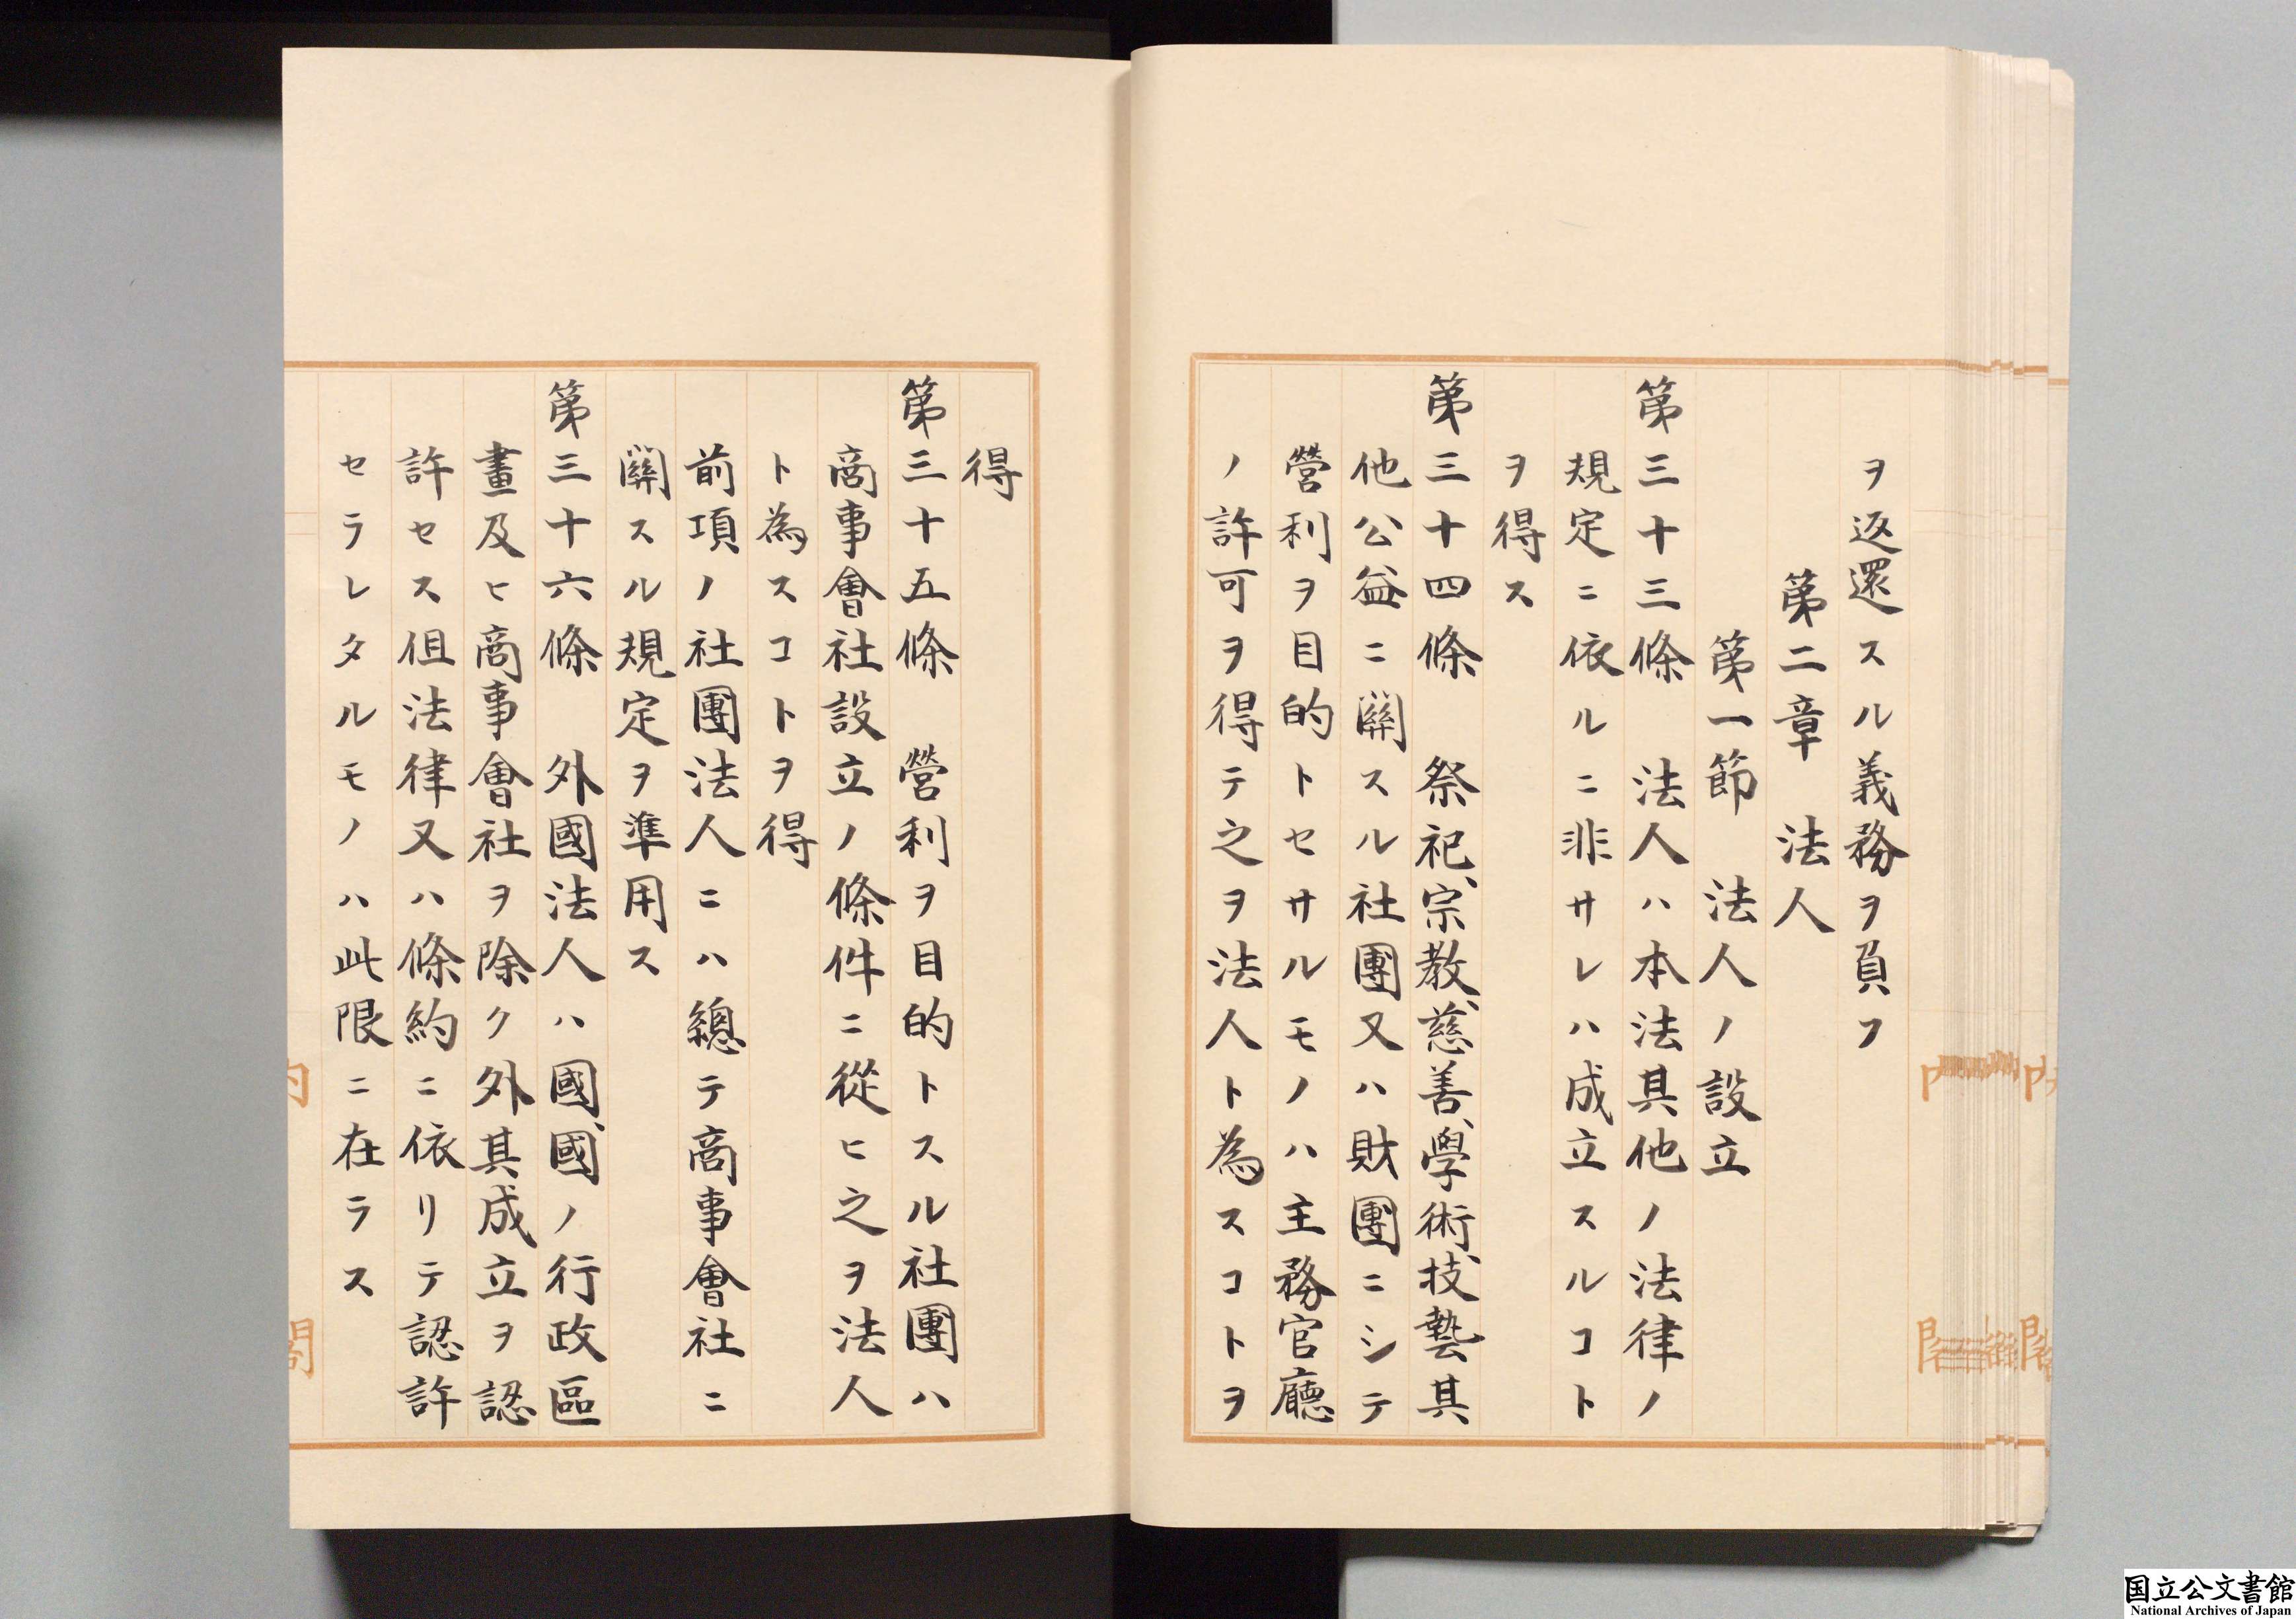 ヲ返還スル義務ヲ負フ
第二章　法人
第一節　法人ノ設立
第三十三條　法人ハ本法其他ノ法律ノ
規定ニ依ルニ非サレハ成立スルコト
ヲ得ス
第三十四條　祭祀、宗教、慈善、學術、技藝其
他公益ニ關スル社團又ハ財團ニシテ
營利ヲ目的トセサルモノハ主務官廳
ノ許可ヲ得テ之ヲ法人ト為スコトヲ
得
第三十五條　營利ヲ目的トスル社團ハ
商事會社設立ノ條件ニ從ヒ之ヲ法人
ト為スコトヲ得
前項ノ社團法人ニハ總テ商事會社ニ
關スル規定ヲ準用ス
第三十六條　外國法人ハ國、國ノ行政區
畫及ヒ商事會社ヲ除ク外其成立ヲ認
許セス但法律又ハ條約ニ依リテ認許
セラレタルモノハ此限ニ在ラス
国立公文書館
National Archives of Japan